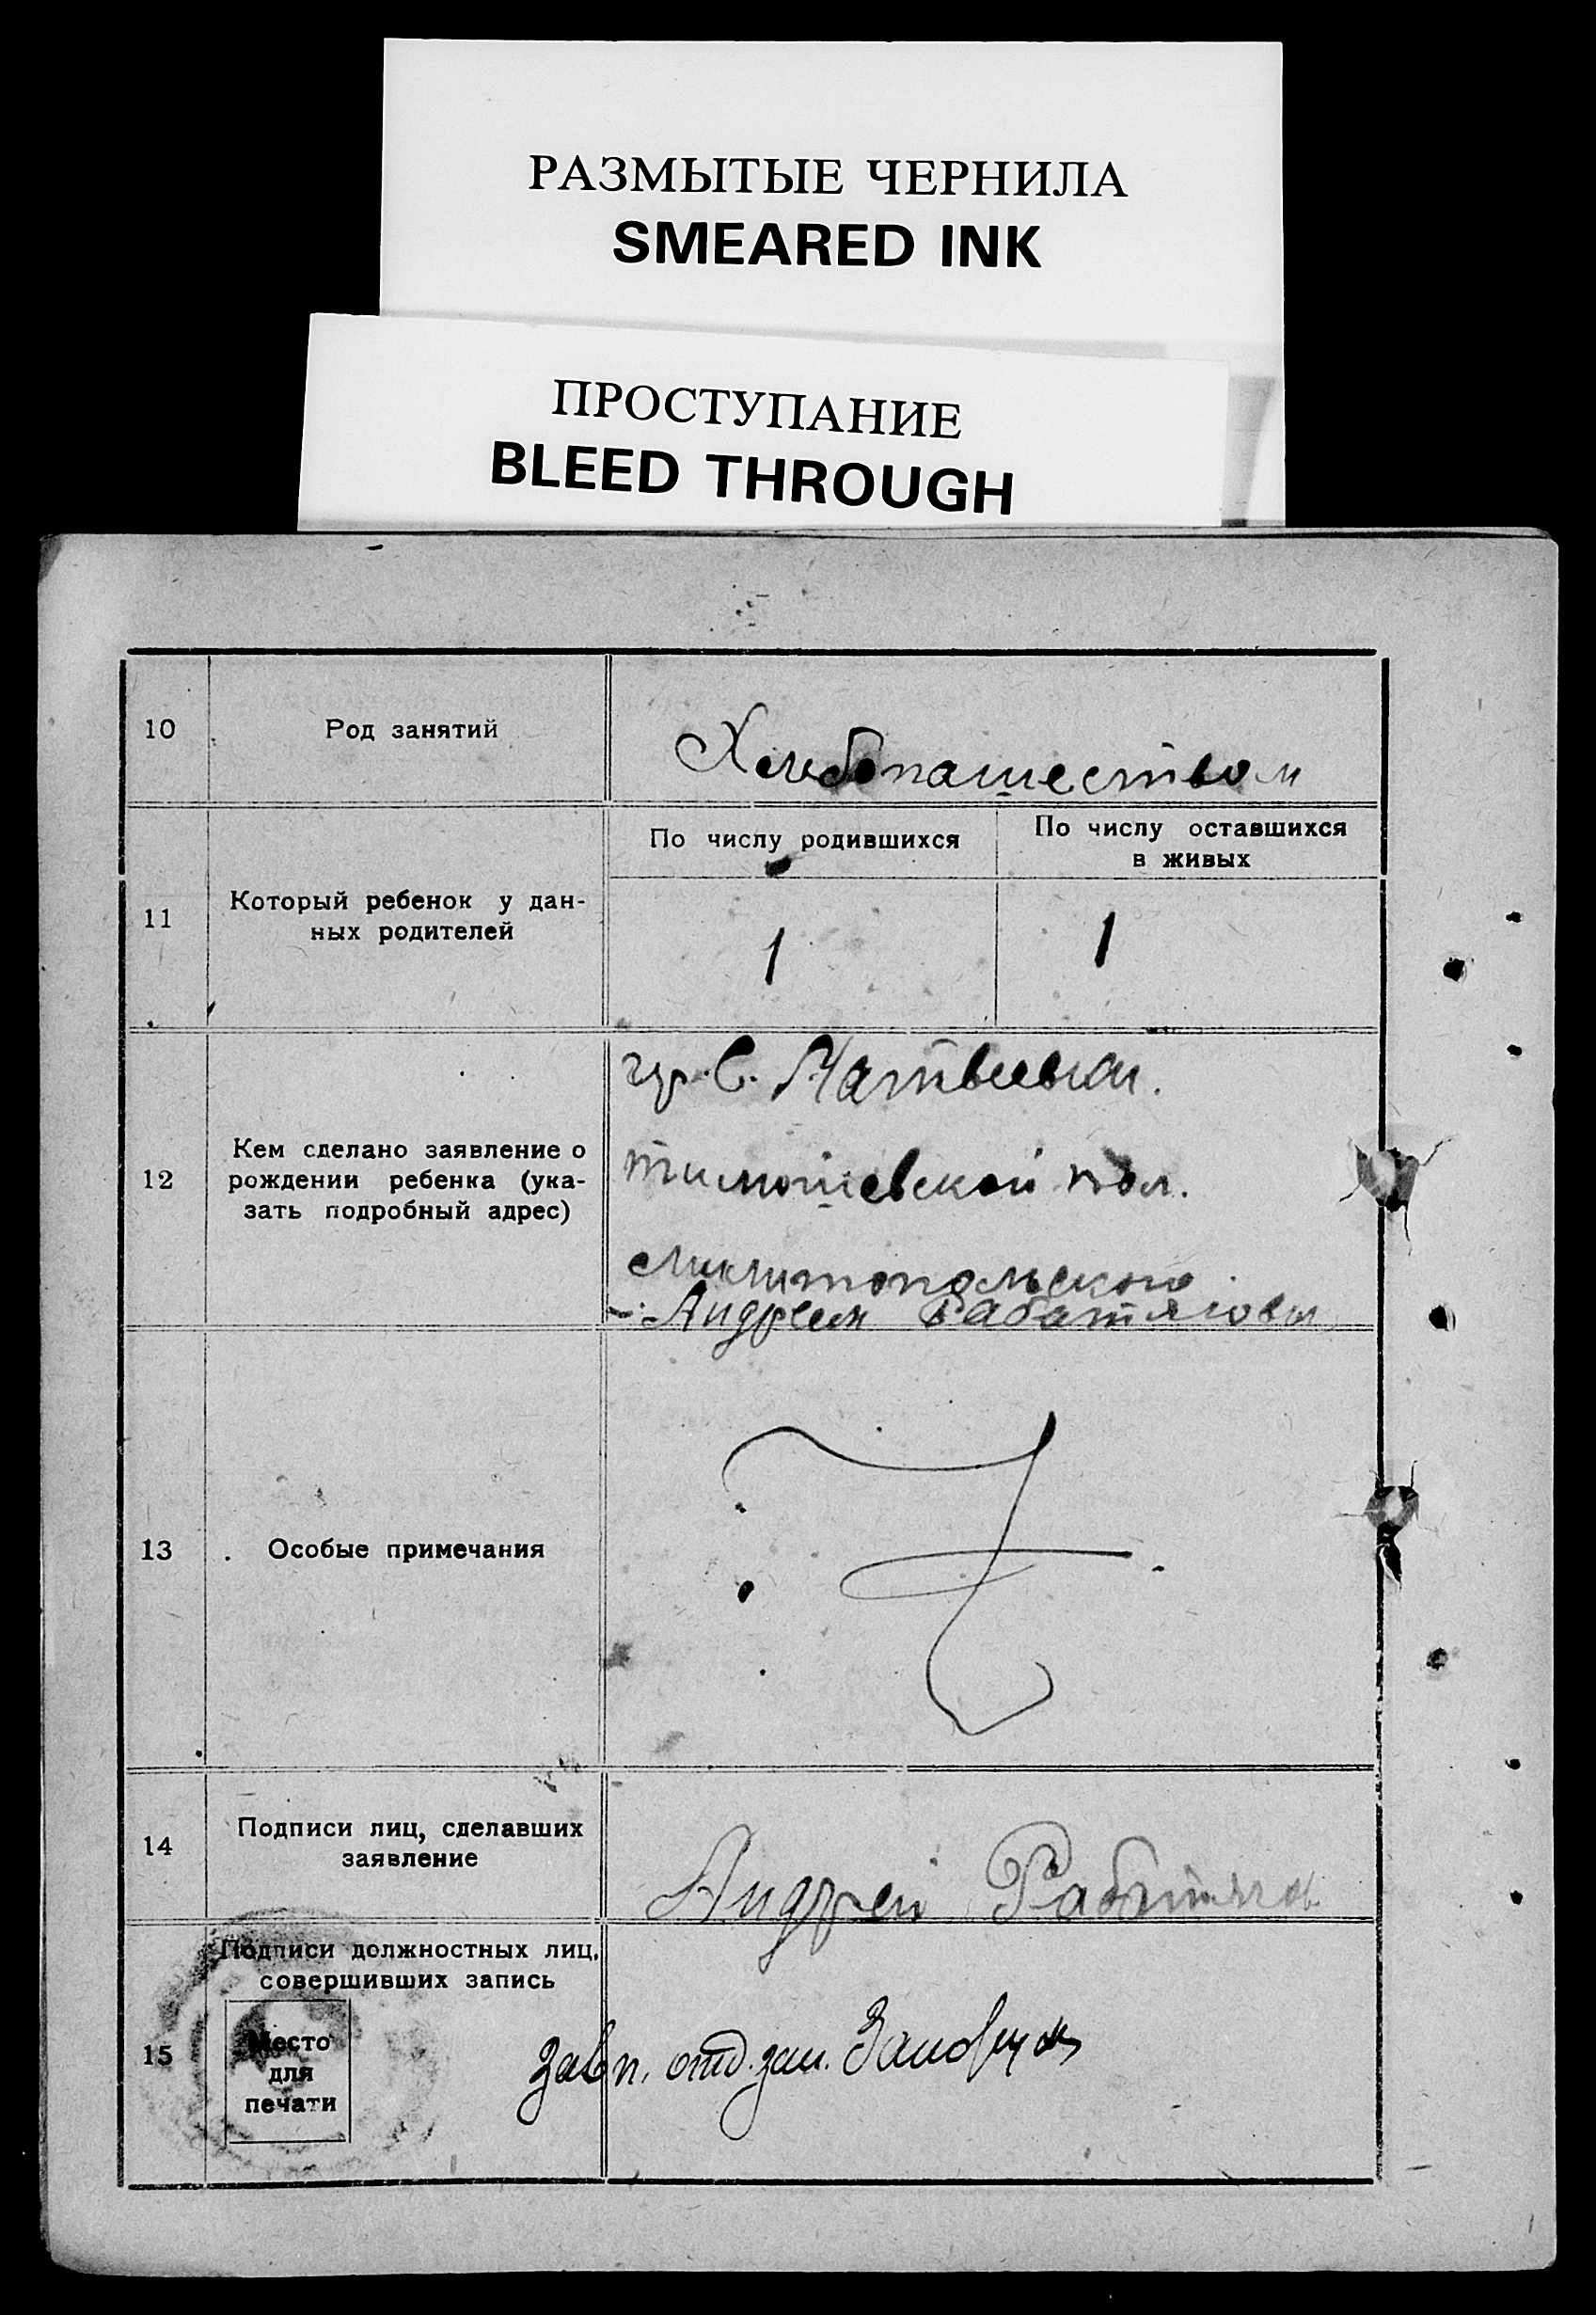 РАЗМЫТЫЕ ЧЕРНИЛА
SMEARED INK
ПРОСТУПАНИЕ
BLEED THROUGH
10 Род занятий Хлебопашеством
11 Который ребенок у дан-
ных родителей
По числу родившихся
По числу оставшихся
в живых
1 1
12 Кем сделано заявление о
рождении ребенка (ука-
зать подробный адрес)
гр. С. Матвеевки.
тимошевской вол.
Андреем
13 Особые примечания
14 Подписи лиц, сделавших
заявление
Андрей
15 Подписи должностных лиц,
совершивших запись
Место
для
печати
отд. зап.